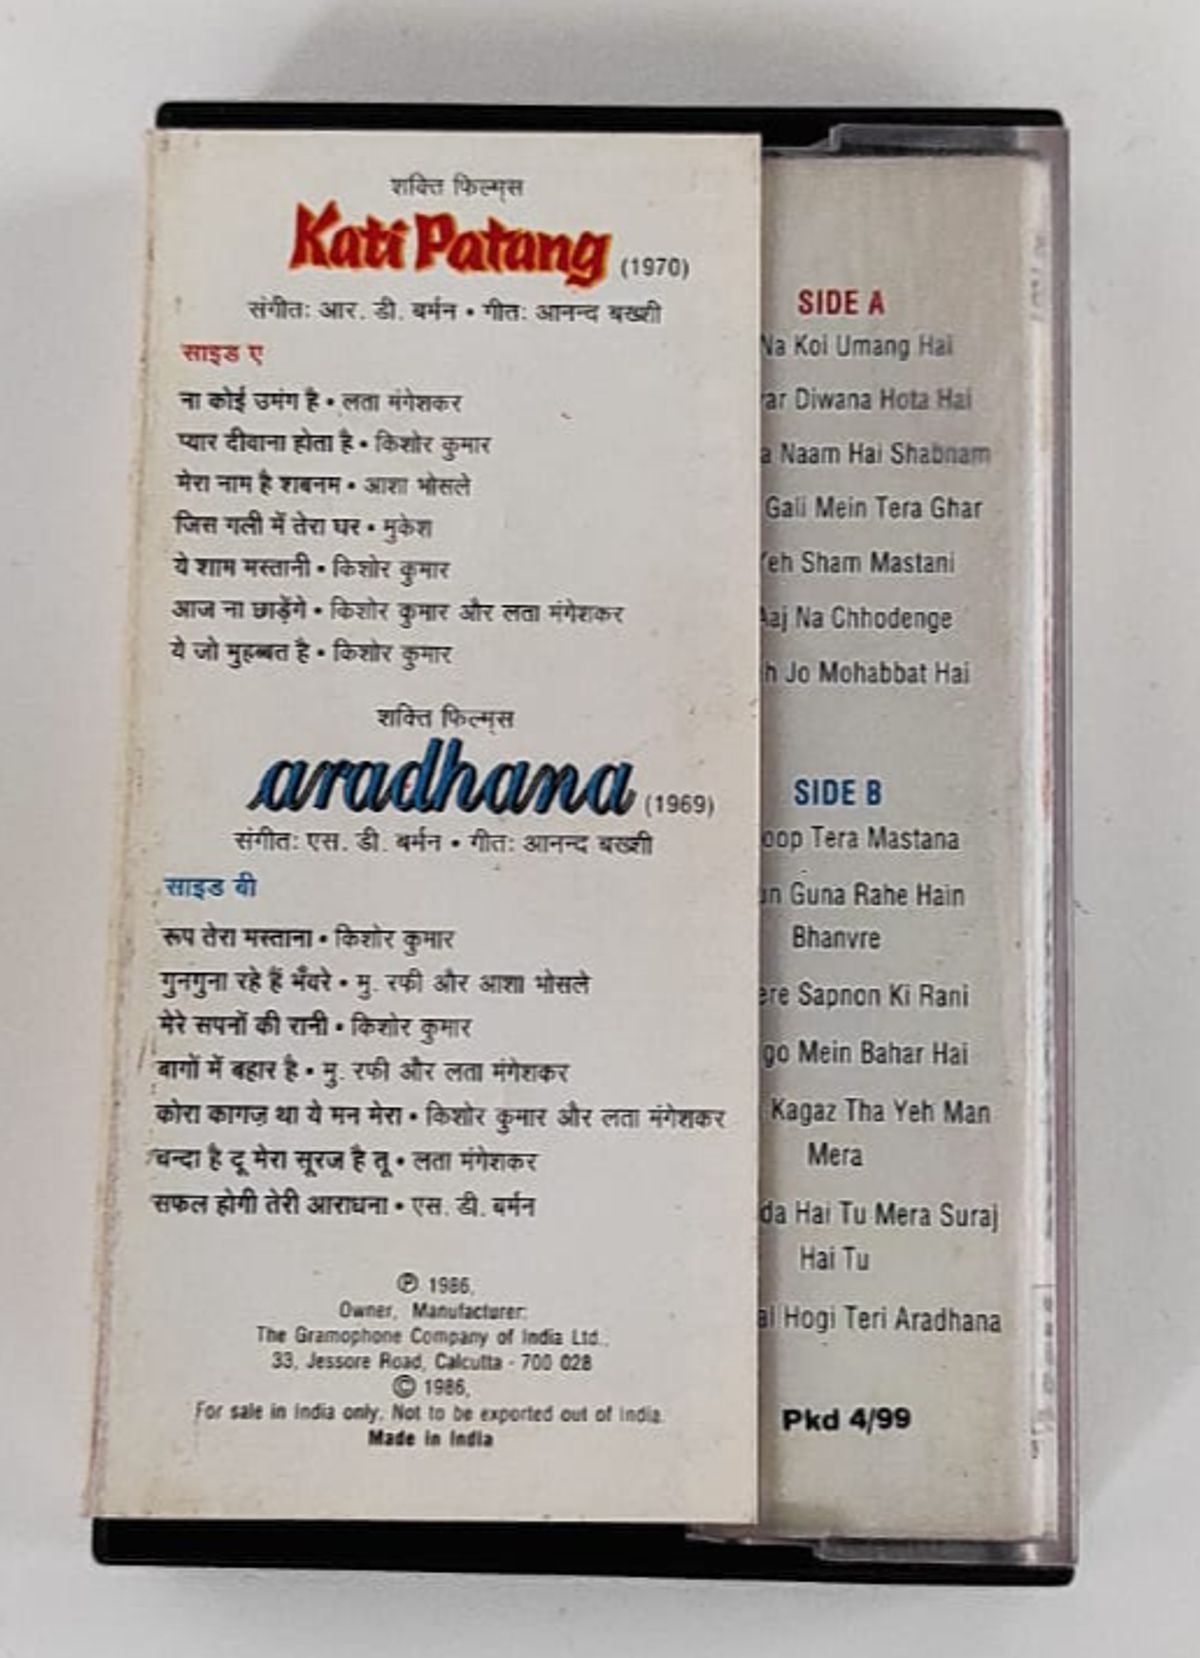 शक्ति फिल्म्स
Kati Patang (1970)
संगीतः आर. डी. बर्मन • गीतः आनन्द बख्शी
साइड ए
ना कोई उमंग है • लता मंगेशकर
प्यार दीवाना होता है • किशोर कुमार
मेरा नाम है शबनम • आशा भोसले
जिस गली में तेरा घर • मुकेश
ये शाम मस्तानी • किशोर कुमार
आज ना छाड़ेंगे • किशोर कुमार और लता मंगेशकर
ये जो मुहब्बत है • किशोर कुमार
शक्ति फिल्म्स
aradhana (1969)
संगीतः एस. डी. बर्मन • गीतः आनन्द बख्शी
साइड बी
रूप तेरा मस्ताना • किशोर कुमार
गुनगुना रहे हैं भँवरे • मु. रफी और आशा भोसले
मेरे सपनों की रानी • किशोर कुमार
बागों में बहार है • मु. रफी और लता मंगेशकर
कोरा कागज़ था ये मन मेरा • किशोर कुमार और लता मंगेशकर
चन्दा है दू मेरा सूरज है तू • लता मंगेशकर
सफल होगी तेरी आराधना • एस. डी. बर्मन
℗ 1986,
Owner, Manufacturer:
The Gramophone Company of India Ltd.,
33, Jessore Road, Calcutta - 700 028
© 1986,
For sale in India only. Not to be exported out of India.
Made in India
SIDE A
Na Koi Umang Hai
ar Diwana Hota Hai
a Naam Hai Shabnam
Gali Mein Tera Ghar
Yeh Sham Mastani
Aaj Na Chhodenge
h Jo Mohabbat Hai
SIDE B
oop Tera Mastana
un Guna Rahe Hain
Bhanvre
ere Sapnon Ki Rani
go Mein Bahar Hai
Kagaz Tha Yeh Man
Mera
da Hai Tu Mera Suraj
Hai Tu
al Hogi Teri Aradhana
Pkd 4/99